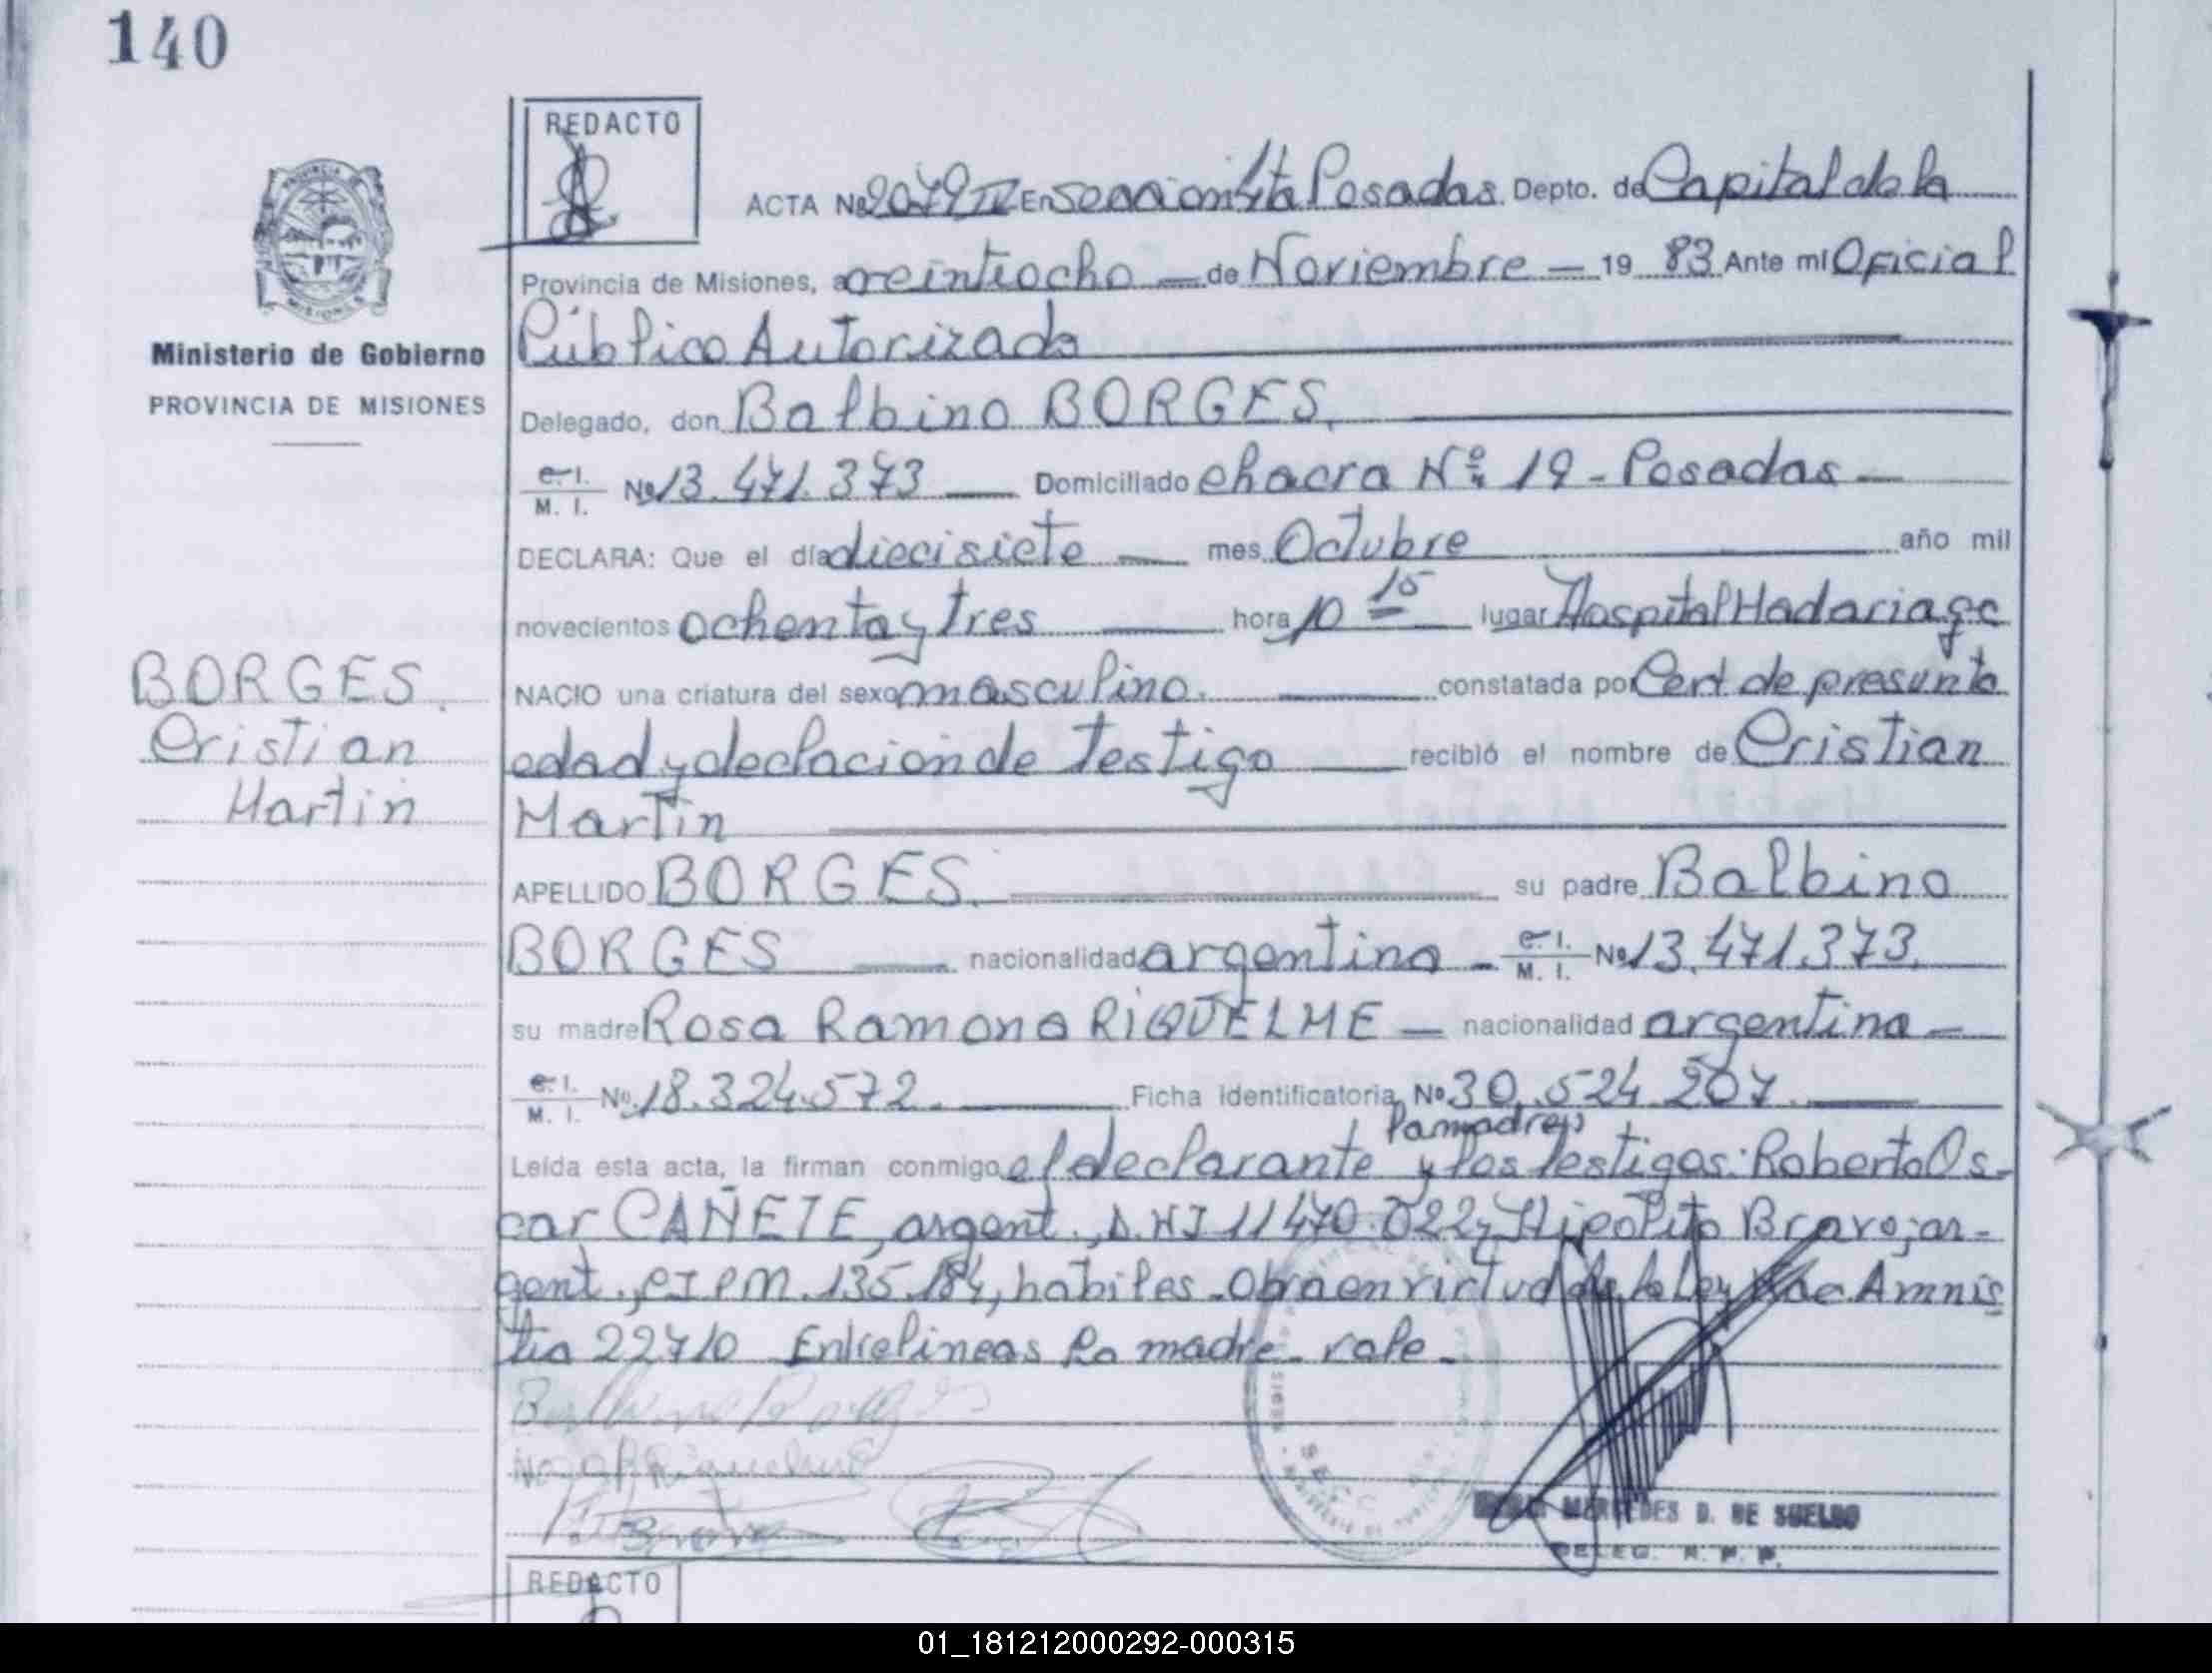 140
REDACTO
ACTA Nº 2079 IV En sección 4ta Posadas Depto. de Capital de la
Provincia de Misiones, a veintiocho — de Noviembre — 19 83 Ante mí Oficial
Ministerio de Gobierno
Público Autorizado
PROVINCIA DE MISIONES
Delegado, don Balbino BORGES.
C. I.
M. I.
Nº 13.471.373 — Domiciliado chacra Nº 19 - Posadas —
DECLARA: Que el día diecisiete — mes Octubre — año mil
novecientos ochenta y tres — hora 10 15 — lugar Hospital Madariaga
BORGES.
NACIO una criatura del sexo masculino. — constatada por Cert de presunta
Cristian
edad y declacion de testigo — recibió el nombre de Cristian
Martin
Martin —
APELLIDO BORGES. — su padre Balbino
BORGES — nacionalidad argentina - C. I. M. I. Nº 13.471.373.
su madre Rosa Ramona RIQUELME — nacionalidad argentina —
C. I.
M. I.
Nº 18.324.572. — Ficha identificatoria Nº 30.524.207. —
la madre
Leída esta acta, la firman conmigo el declarante y los testigos: Roberto Os-
car CAÑETE, argent., D.N.I 11470.022 y Hipolito Bravo, ar-
gent., CI PM. 135.184, habiles. Obra en virtud de la Ley Nac Amnis
tia 22710 Entrelineas la madre - vale -
Balbino Borges
Riquelme
MERCEDES D. DE SUELDO
DELEG. R. P. P.
REDACTO
01_181212000292-000315